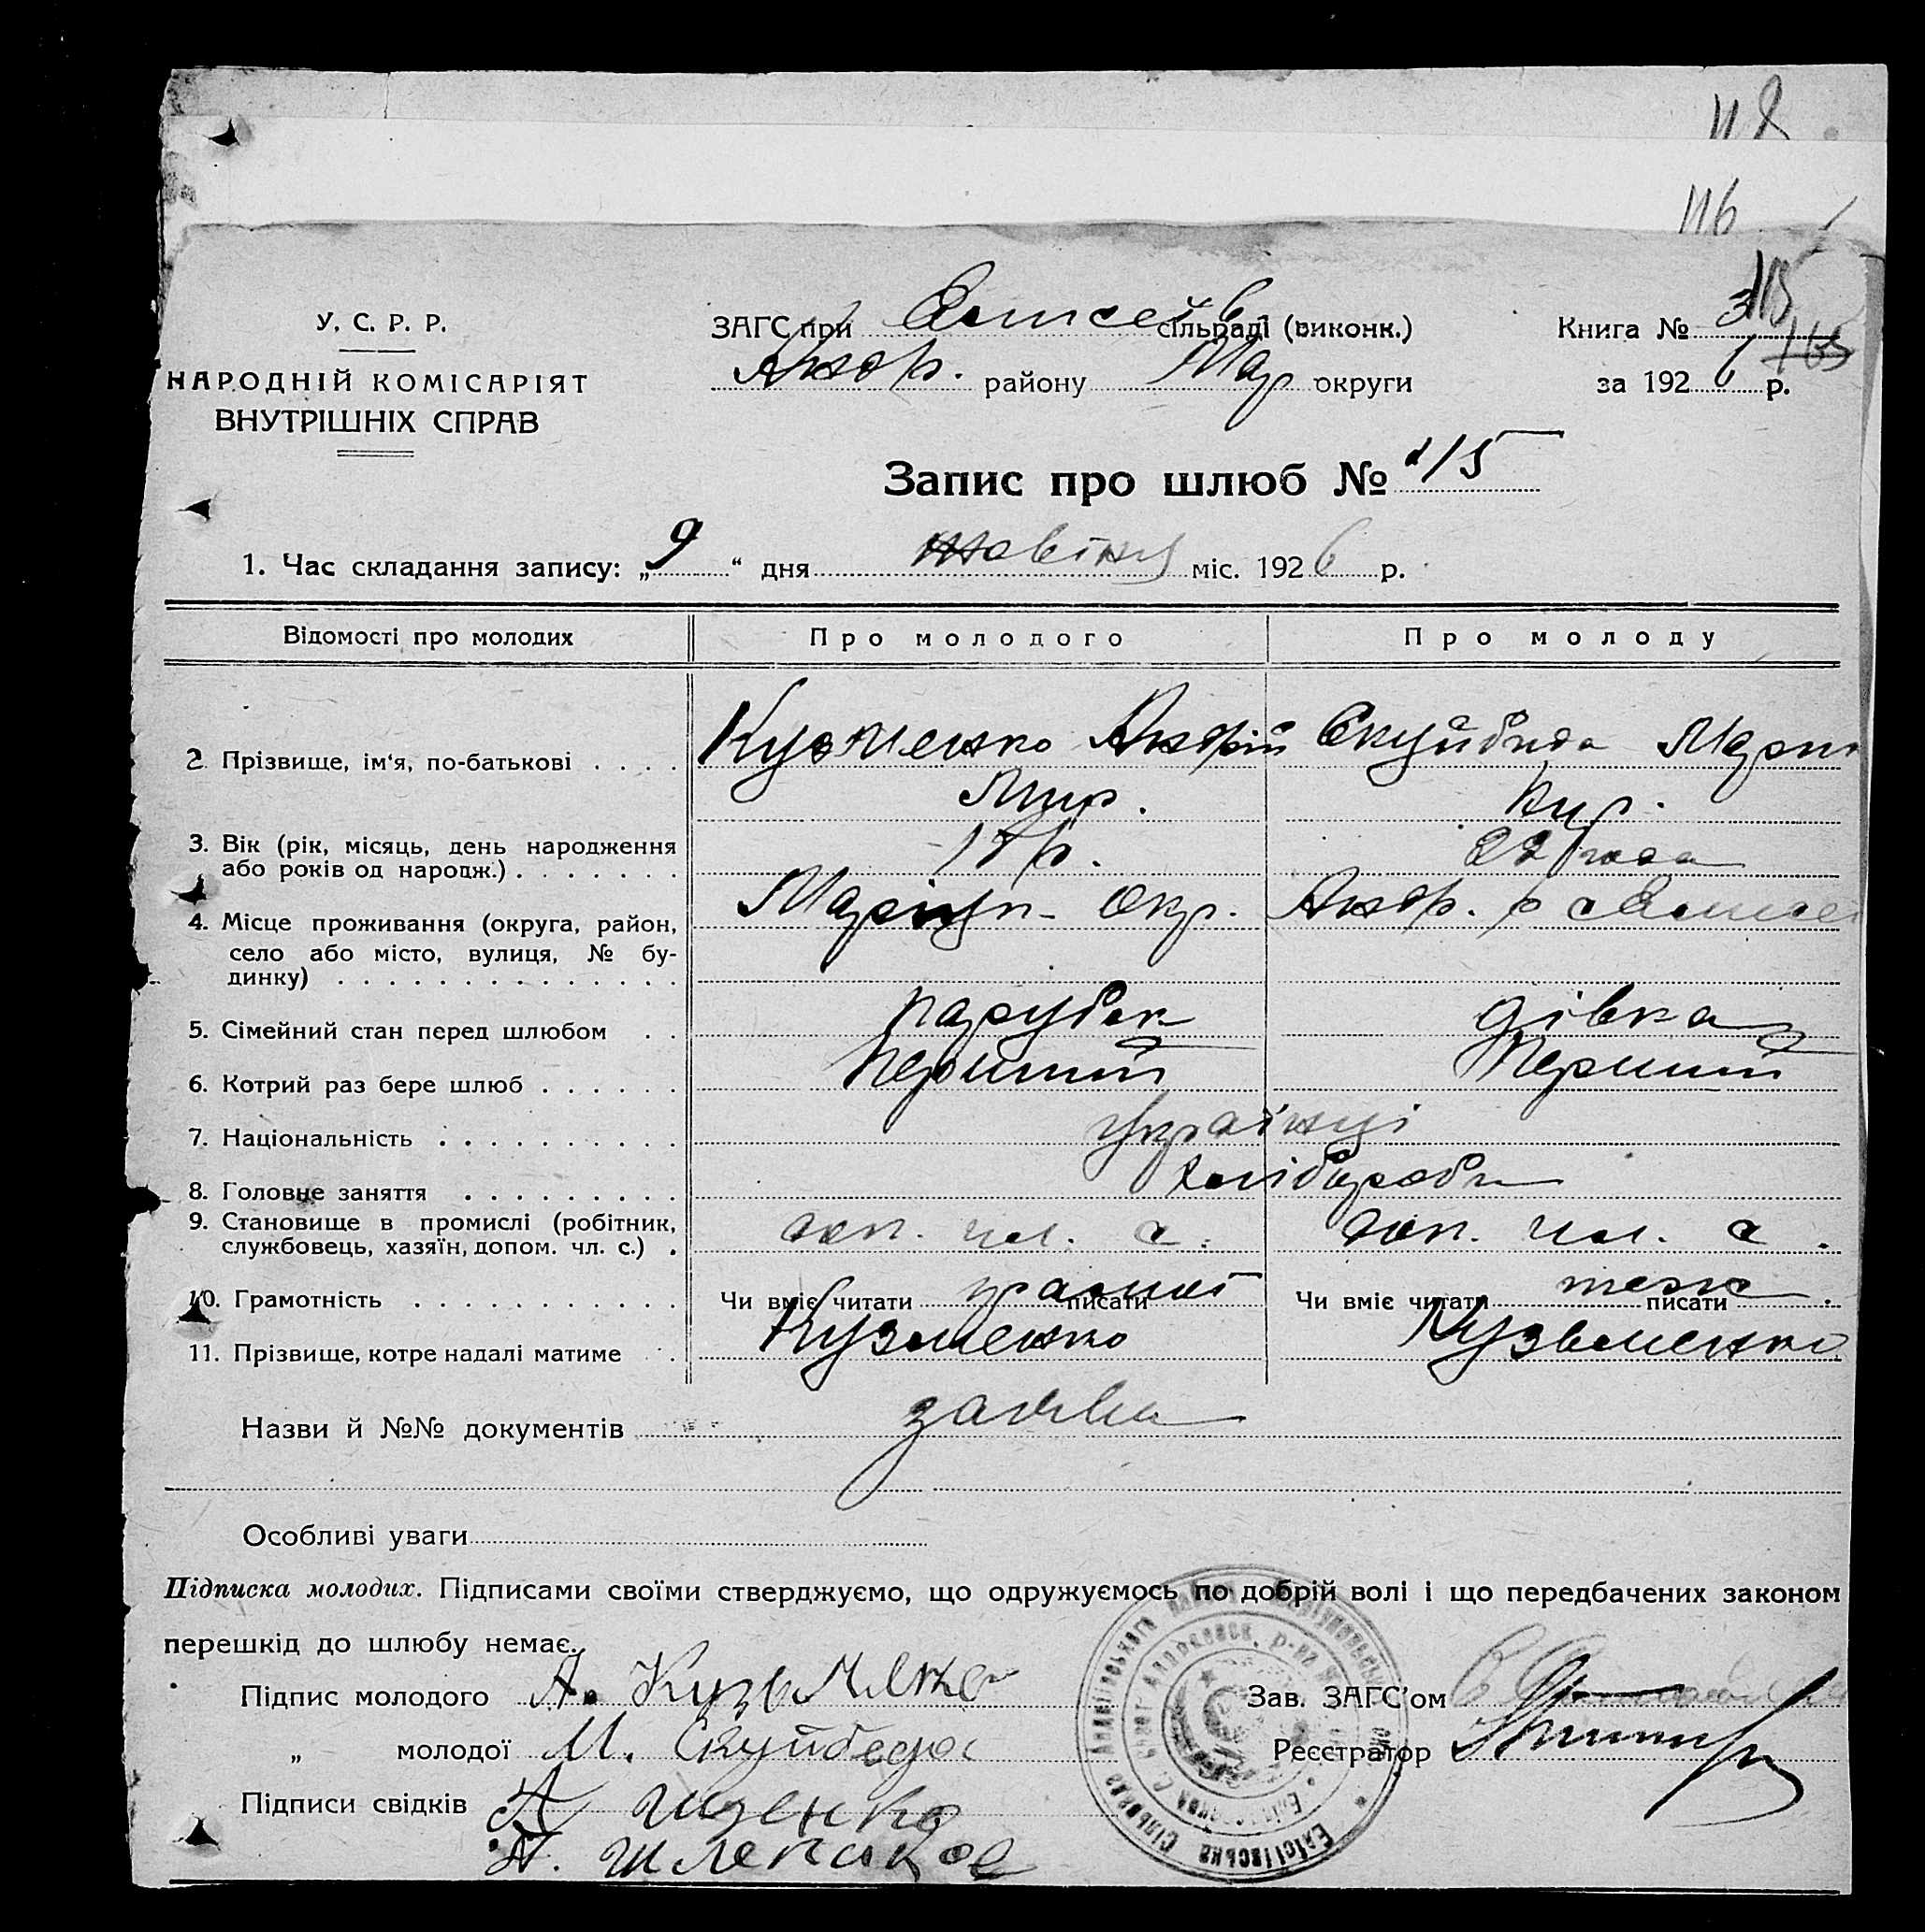 118
116
115
У. С. Р. Р.
НАРОДНІЙ КОМІСАРІЯТ
ВНУТРІШНІХ СПРАВ
ЗАГС при Елисеїв сільраді (виконк.)
Андр. району Мар округи
Книга № 3
за 1926 р.
Запис про шлюб № 15
1. Час складання запису: „9“ дня жовтня міс. 1926 р.
Відомості про молодих Про молодого Про молоду
2 Прізвище, ім‘я, по-батькові . . . . Кузменко Андрій Скуйбида Мари
Мир. Кир.
3. Вік (рік, місяць, день народження
або років од народж.) . . . . . . . р. 22 года
4. Місце проживання (округа, район, Маріуп- Окр. Андр. р с Елисеї
село або місто, вулиця, № бу-
динку) . . . . . . . . . . . . . .
5. Сімейний стан перед шлюбом . . парубок дівка
6. Котрий раз бере шлюб . . . . . . Перший Перший
7. Національність . . . . . . . . . . Українці
8. Головне заняття . . . . . . . . . хліборобы
9. Становище в промислі (робітник,
службовець, хазяїн, допом. чл. с.) . доп. чл. с. доп. чл. с.
10. Грамотність . . . . . . . . . . . Чи вміє читати писати Чи вміє читати теж писати
11. Прізвище, котре надалі матиме . . Кузменко Кузьменко
Назви й №№ документів заява
Особливі уваги
Підписка молодих. Підписами своїми стверджуємо, що одружуємось по добрій волі і що передбачених законом
перешкід до шлюбу немає.
Підпис молодого А. Кузьменко Зав. ЗАГС’ом
„ молодої М. Скуйбеда Реєстратор
Підписи свідків А Ищенко